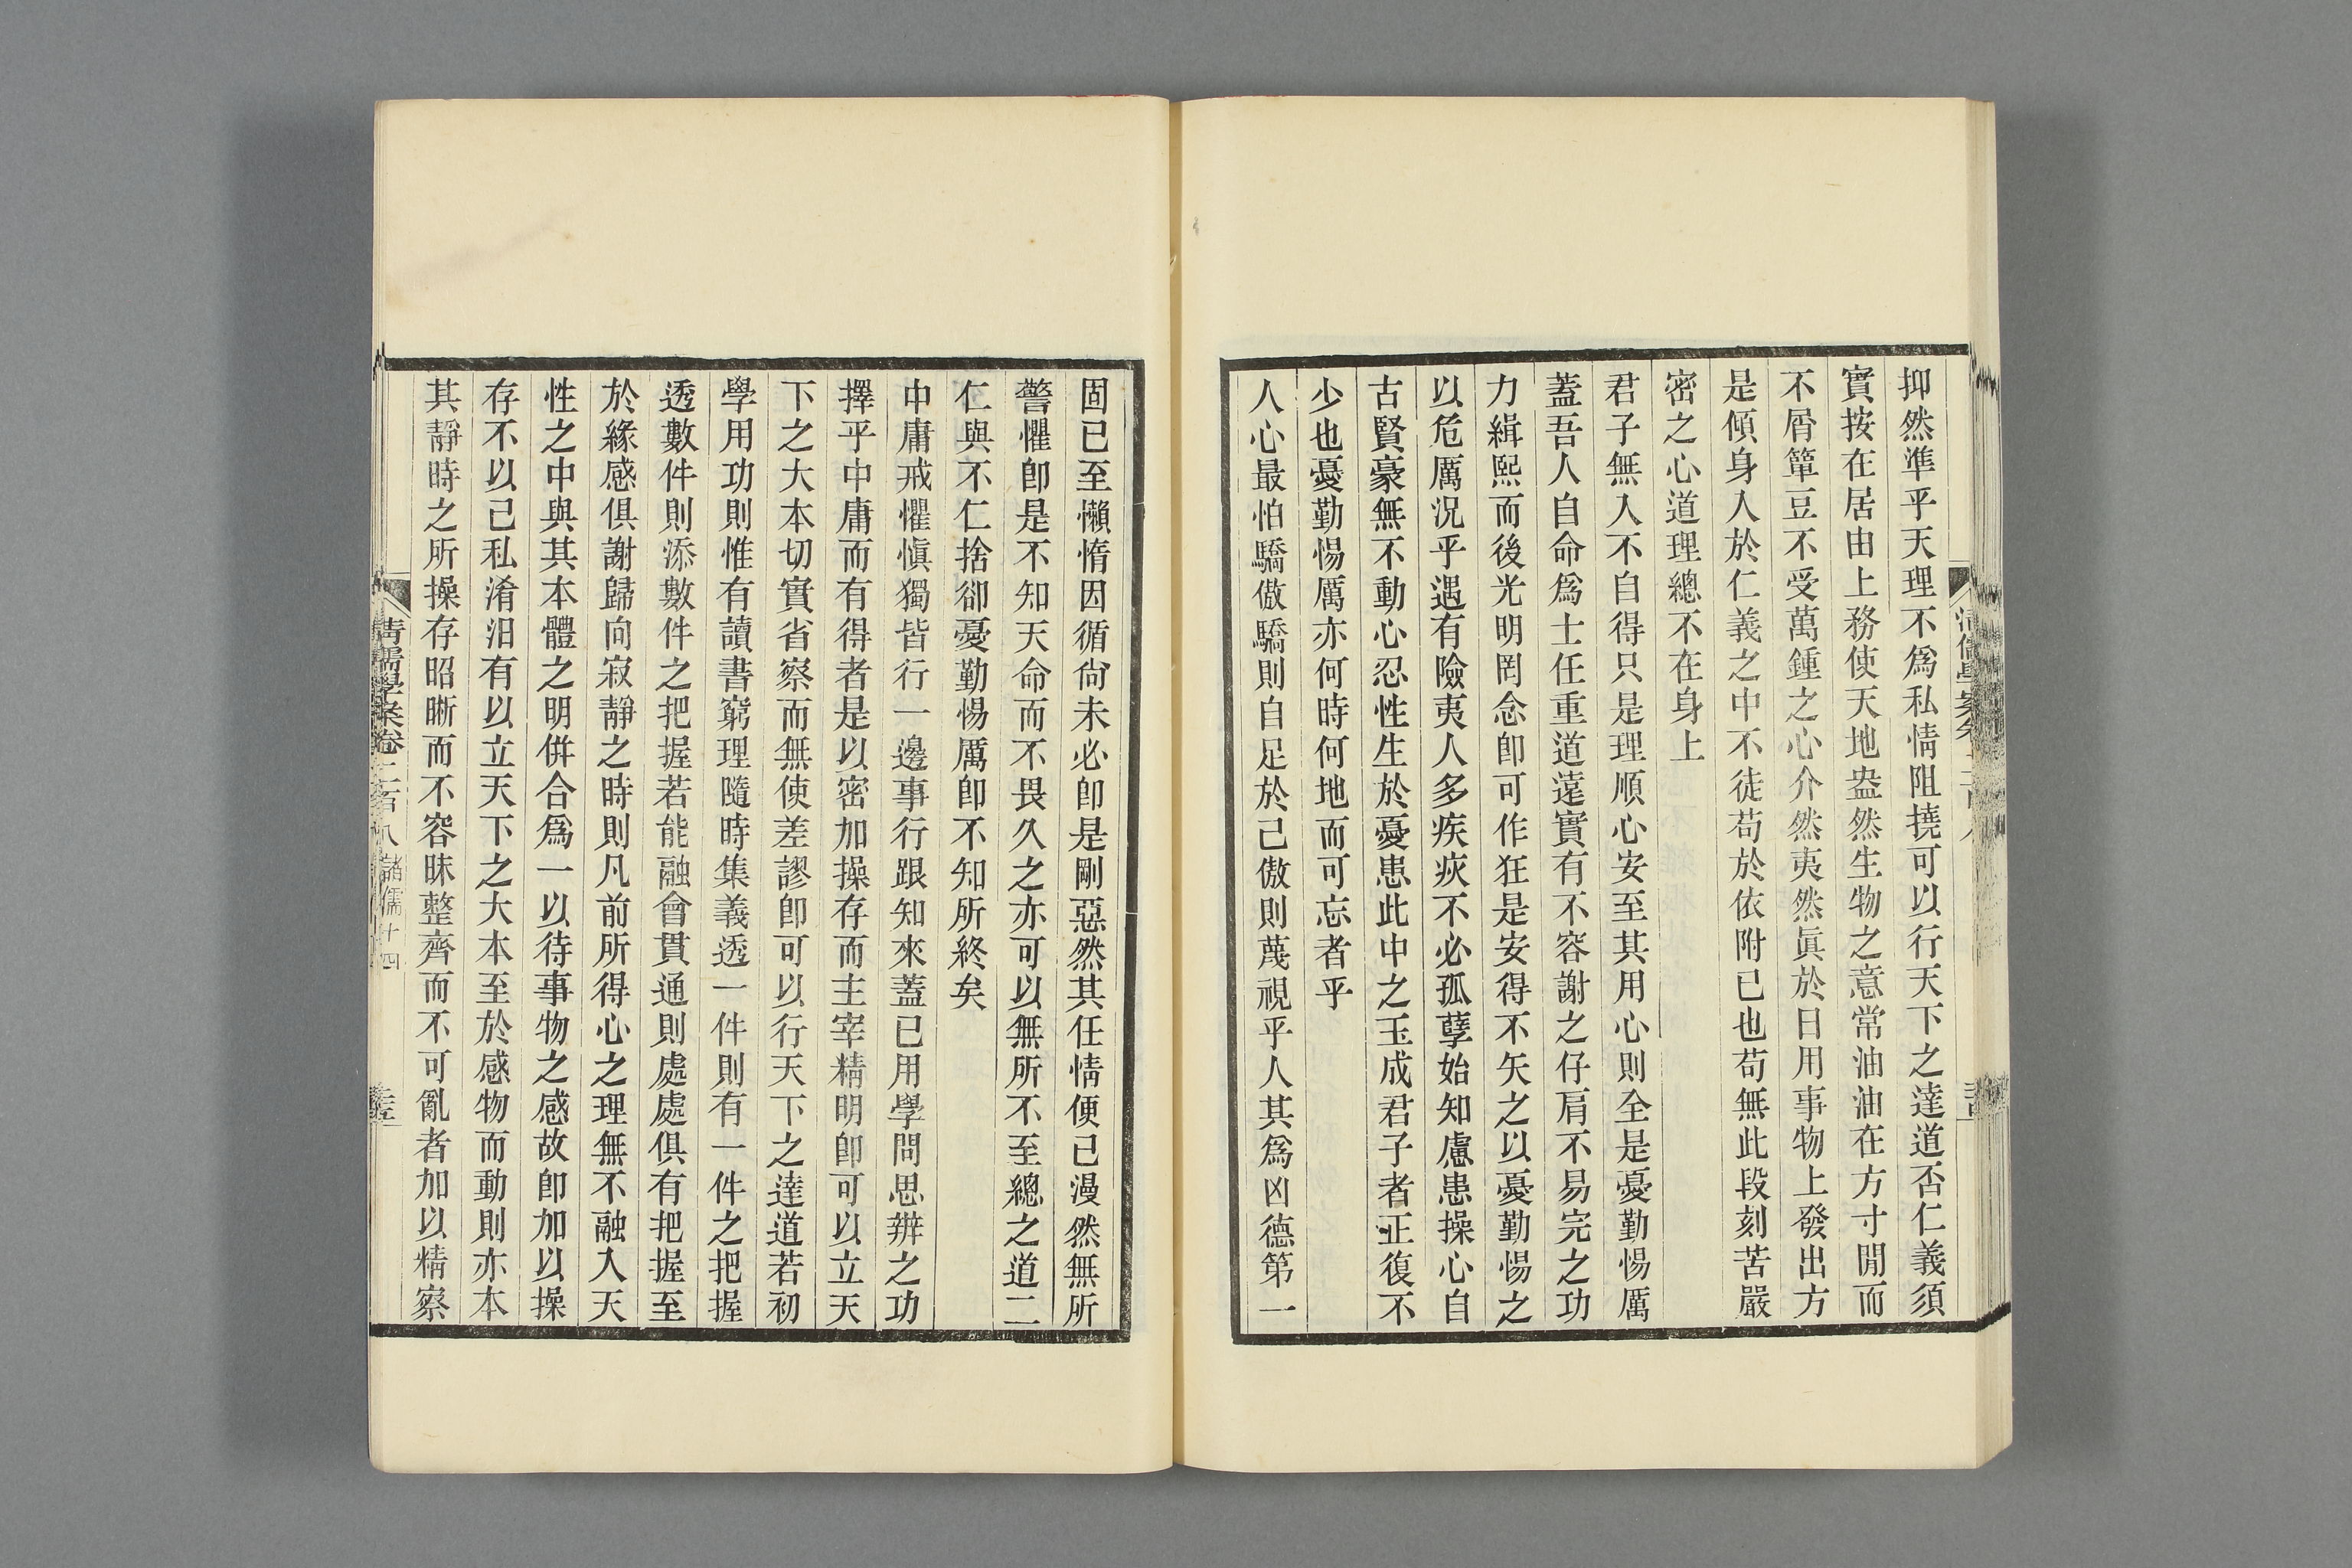 抑然準乎天理不爲私情阻撓可以行天下之達道否仁義須
實按在居由上務使天地盎然生物之意常油油在方寸閒而
不屑簞豆不受萬鍾之心介然夷然眞於日用事物上發出方
是傾身入於仁義之中不徒苟於依附已也苟無此段刻苦嚴
密之心道理總不在身上
君子無入不自得只是理順心安至其用心則全是憂勤惕厲
蓋吾人自命爲士任重道遠實有不容謝之仔肩不易完之功
力緝熙而後光明罔念卽可作狂是安得不矢之以憂勤惕之
以危厲況乎遇有險夷人多疾疢不必孤孽始知慮患操心自
古賢豪無不動心忍性生於憂患此中之玉成君子者正復不
少也憂勤惕厲亦何時何地而可忘者乎
人心最怕驕傲驕則自足於己傲則蔑視乎人其爲凶德第一
固已至懶惰因循尙未必卽是剛惡然其任情便已漫然無所
警懼卽是不知天命而不畏久之亦可以無所不至總之道二
仁與不仁捨卻憂勤惕厲卽不知所終矣
中庸戒懼愼獨皆行一邊事行跟知來蓋已用學問思辨之功
擇乎中庸而有得者是以密加操存而主宰精明卽可以立天
下之大本切實省察而無使差謬卽可以行天下之達道若初
學用功則惟有讀書窮理隨時集義透一件則有一件之把握
透數件則添數件之把握若能融會貫通則處處俱有把握至
於緣感俱謝歸向寂靜之時則凡前所得心之理無不融入天
性之中與其本體之明併合爲一以待事物之感故卽加以操
存不以己私淆汨有以立天下之大本至於感物而動則亦本
其靜時之所操存昭晰而不容昧整齊而不可亂者加以精察
清儒學案卷二百八 諸儒十四